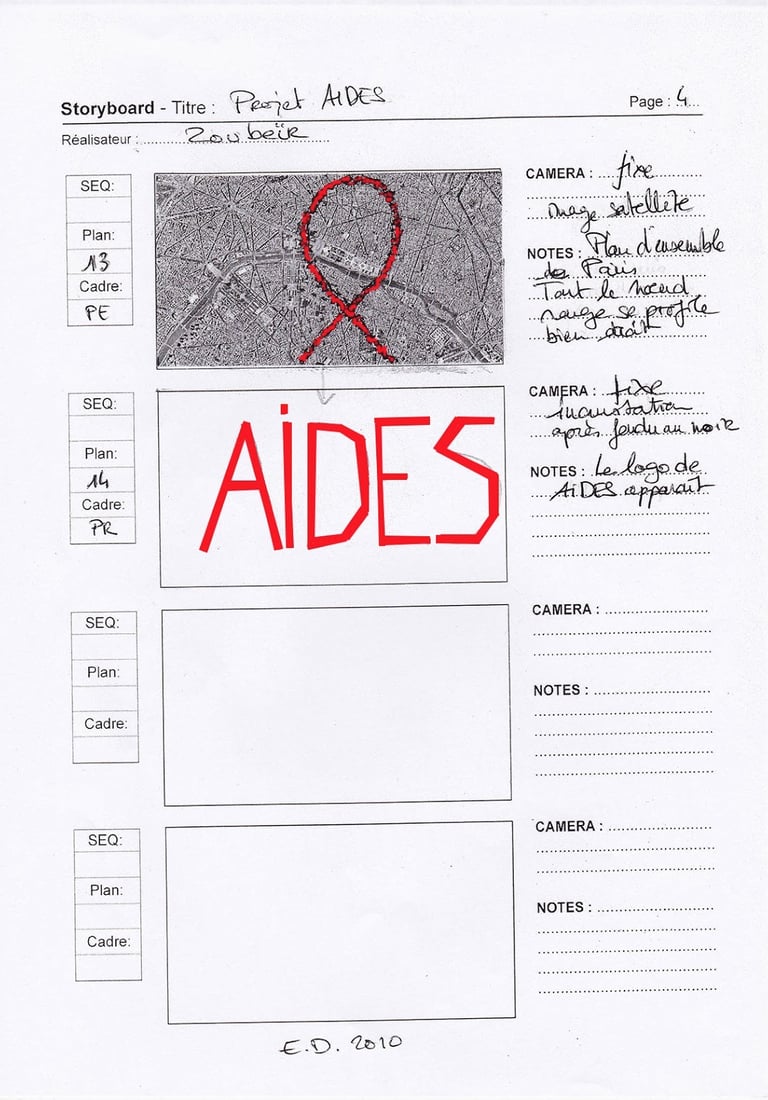 Storyboard - Titre : Projet AIDES
Page : 4
Réalisateur : Zoubeïr
SEQ:
Plan:
13
Cadre:
PE
CAMERA : fixe
image satellite
NOTES : Plan d'ensemble
de Paris
Tout le nœud
rouge se profile
bien droit
SEQ:
Plan:
14
Cadre:
PR
AiDES
CAMERA : fixe
incrustation
après fondu au noir
NOTES : Le logo de
AiDES apparait
SEQ:
Plan:
Cadre:
CAMERA :
NOTES :
SEQ:
Plan:
Cadre:
CAMERA :
NOTES :
E.D. 2010